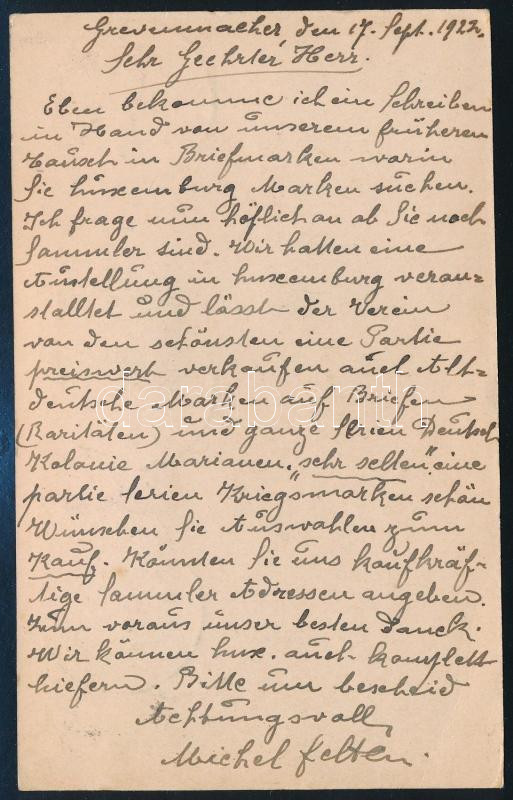 Grevenmacher, den 17. Sept. 1922.
Sehr Geehrter Herr.
Eben bekomme ich ein Schreiben
in Hand von unserem früheren
Tausch in Briefmarken worin
Sie Luxemburg Marken suchen.
Ich frage nun höflich an ob Sie noch
Sammler sind. Wir hatten eine
Austellung in Luxemburg veran-
stalltet und lässt der Verein
von den schönsten eine Partie
preiswert verkaufen auch Alt-
deutsche Marken auf Briefen
(Raritäten) und ganze Serien Deutsch
Kolonie Marianen. "sehr selten" eine
partie serien Kriegsmarken schön
Wünschen Sie Auswahlen zum
Kauf. Könnten Sie uns kaufkräf-
tige Sammler Adressen angeben.
Zum voraus unser besten Danck.
Wir können Lux. auch komplett
liefern. Bitte um bescheid
Achtungsvoll
Michel Felten.
darabanth